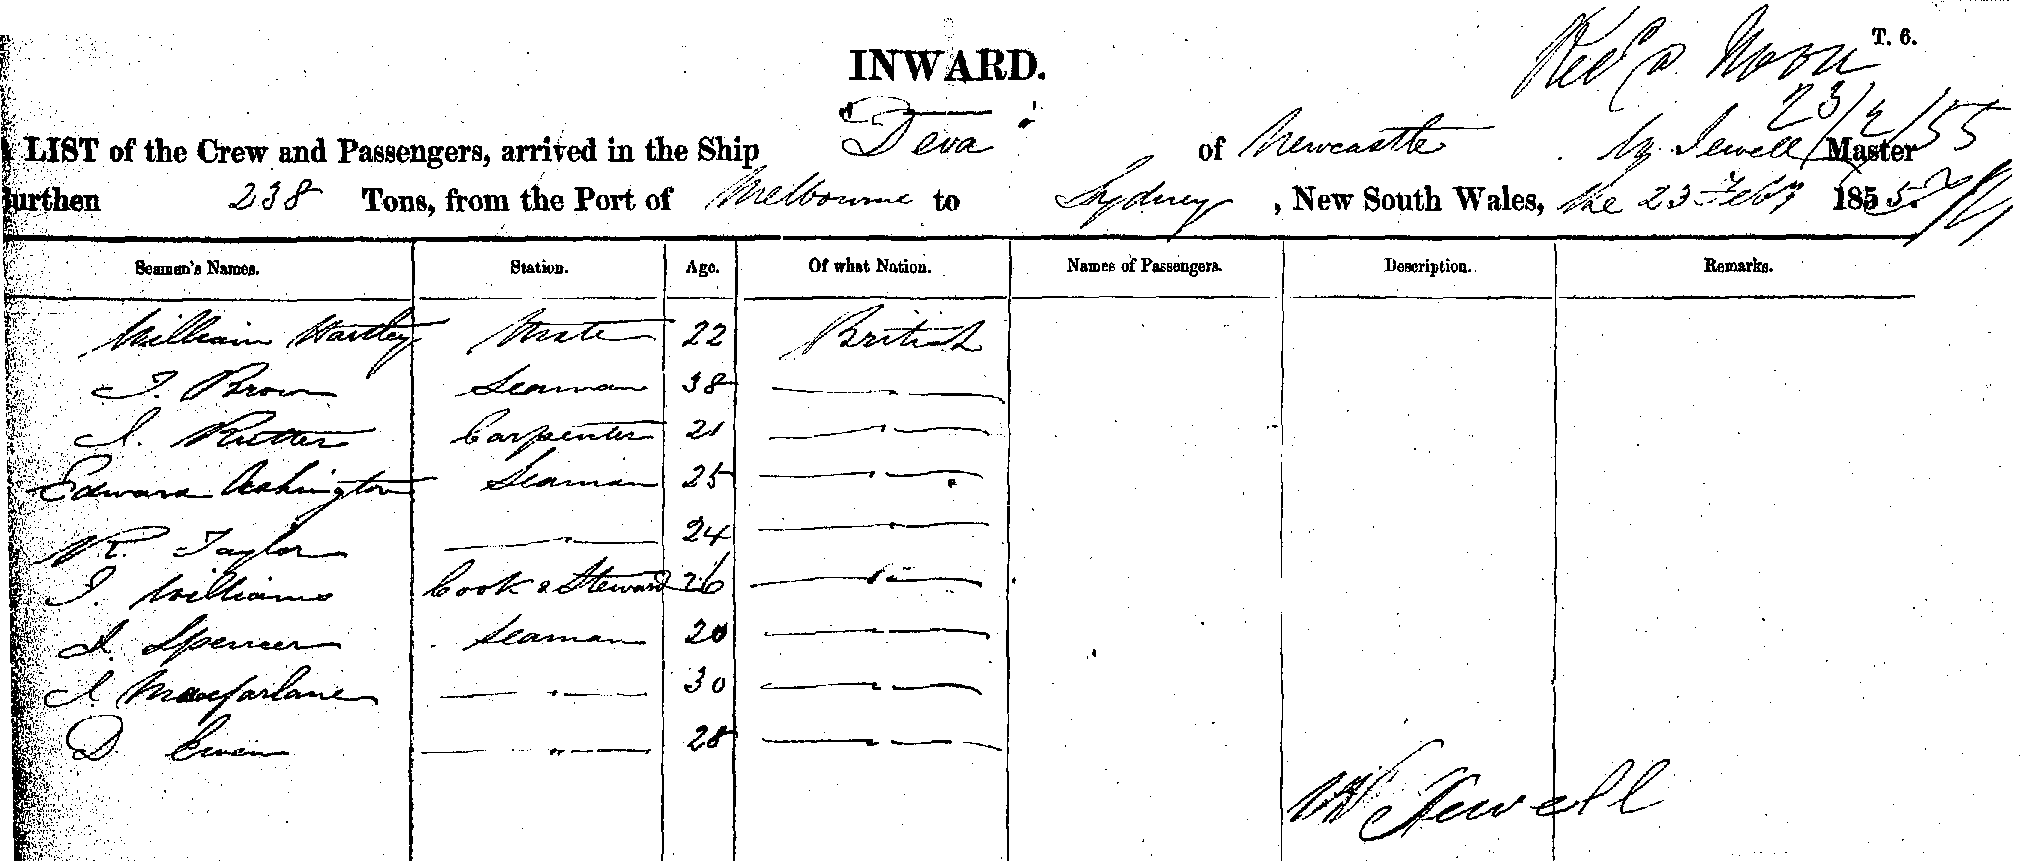 T. 6.
INWARD.
Rec'd Noon
23/2/55
LIST of the Crew and Passengers, arrived in the Ship "Deva" of Newcastle Wm Jewell Master
Burthen 238 Tons, from the Port of Melbourne to Sydney, New South Wales, the 23 Feby 1855
Seamen's Names. Station. Age. Of what Nation. Names of Passengers. Description. Remarks.
William Hartley Mate 22 British
J. Brown Seaman 38 — " —
J. Rutter Carpenter 21 — " —
Edward Ashington Seaman 25 — " —
R. Taylor — " — 24 — " —
J. Williams Cook & Steward 26 — " —
J. Spencer Seaman 20 — " —
J. Macfarlane — " — 30 — " —
D. Ewen — " — 28 — " —
Wm Jewell